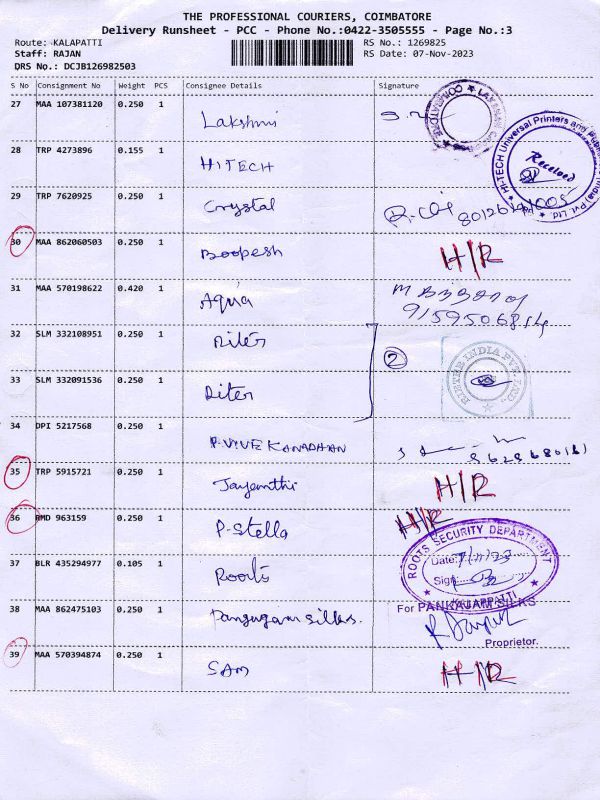 THE PROFESSIONAL COURIERS, COIMBATORE
Delivery Runsheet - PCC - Phone No.:0422-3505555 - Page No.:3
Route: KALAPATTI RS No.: 1269825
Staff: RAJAN RS Date: 07-Nov-2023
DRS No.: DCJB126982503
S No Consignment No Weight PCS Consignee Details Signature
27 MAA 107381120 0.250 1 Lakshmi
28 TRP 4273896 0.155 1 HITECH
HI-TECH Universal Printers and
Received
29 TRP 7620925 0.250 1 Crystal
30 MAA 862060503 0.250 1 Boopesh H/R
31 MAA 570198622 0.420 1 Aqua
9159506814
32 SLM 332108951 0.250 1 Riter
33 SLM 332091536 0.250 1 Riter 2
34 DPI 5217568 0.250 1 P. VIVEKANADHAN
35 TRP 5915721 0.250 1 Jayanthi H/R
36 RMD 963159 0.250 1 P. Stella H/R
37 BLR 435294977 0.105 1 Roots
ROOTS SECURITY DEPARTMENT
Date: 7/11/23
Sign:
KALAPPATTI
38 MAA 862475103 0.250 1 Pangugam silks.
For PANKAJAM SILKS
Proprietor.
39 MAA 570394874 0.250 1 SAM H/R